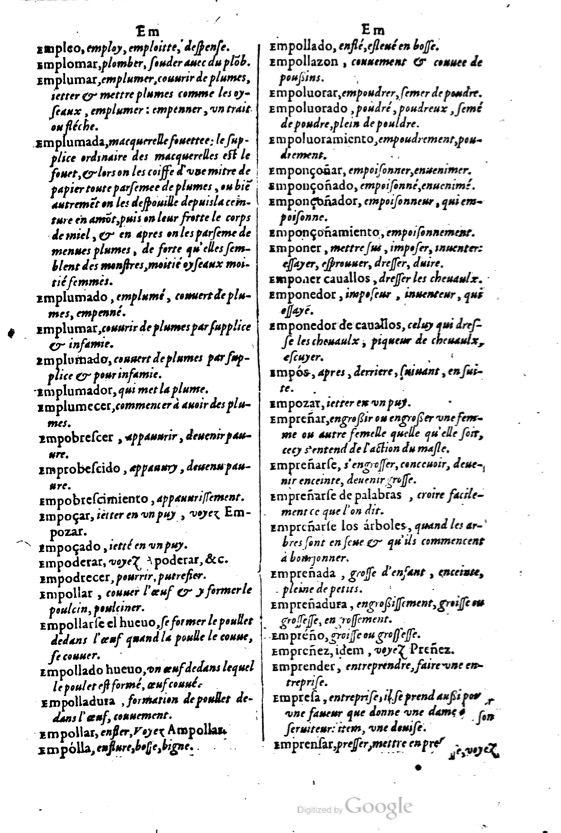 Em
Empleo, employ, emploitte, despense.
Emplomar, plomber, souder auec du plōb.
Emplumar, emplumer, couurir de plumes,
ietter & mettre plumes comme les oy-
seaux, emplumer: empenner, vn trait
ou fléche.
Emplumada, macquerelle fouettee: le sup-
plice ordinaire des macquerelles est le
fouet, & lors on les coiffe d'vne mitre de
papier toute parsemee de plumes, ou biē
autremēt on les despouille depuis la cein-
ture en amōt, puis on leur frotte le corps
de miel, & en apres on les parseme de
menues plumes, de forte qu'elles sem-
blent des monstres, moitié oyseaux moi-
tié femmes.
Emplumado, emplumé, couuert de plu-
mes, empenné.
Emplumar, couurir de plumes par supplice
& infamie.
Emplumado, couuert de plumes par sup-
plice & pour infamie.
Emplumador, qui met la plume.
Emplumecer, commencer à auoir des plu-
mes.
Empobrescer, appauurir, deuenir pau-
ure.
Emprobescido, appauury, deuenu pau-
ure.
Empobrescimiento, appauurissement.
Empoçar, ietter en vn puy, voyez Em-
pozar.
Empoçado, ietté en vn puy.
Empoderar, voyez Apoderar, &c.
Empodrecer, pourrir, putrefier.
Empollar, couuer l'œuf & y former le
poulcin, poulciner.
Empollarse el hueuo, se former le poullet
dedans l'œuf quand la poulle le couue,
se couuer.
Empollado hueuo, vn œuf dedans lequel
le poulet est formé, œuf couué.
Empolladura, formation de poullet de-
dans l'œuf, couuement.
Empollar, enfler, Voyez Ampollar.
Empólla, enflure, bosse, bigne.
Em
Empollado, enflé, esleué en bosse.
Empollazon, couuement & couuee de
poussins.
Empoluorar, empoudrer, semer de poudre.
Empoluorado, poudré, poudreux, semé
de poudre, plein de pouldre.
Empoluoramiento, empoudrement, pou-
drement.
Emponçoñar, empoisonner, enuenimer.
Emponçoñado, empoisonné, enuenimé.
Emponçoñador, empoisonneur, qui em-
poisonne.
Emponçoñamiento, empoisonnement.
Emponer, mettre sus, imposer, inuenter:
essayer, esprouuer, dresser, duire.
Emponer cauallos, dresser les cheuaulx.
Emponedor, imposeur, inuenteur, qui
essayé.
Emponedor de cauallos, celuy qui dres-
se les cheuaulx, piqueur de cheuaulx,
escuyer.
Empós, apres, derriere, suiuant, en sui-
te.
Empozar, ietter en vn puy.
Empreñar, engrossir ou engrosser vne fem-
me ou autre femelle quelle qu'elle soit,
cecy s'entend de l'action du masle.
Empreñarse, s'engrosser, conceuoir, deue-
nir enceinte, deuenir grosse.
Empreñarse de palabras, croire facile-
ment ce que l'on dit.
Empreñarse los árboles, quand les ar-
bres sont en seue & qu'ils commencent
à bourjonner.
Empreñada, grosse d'enfant, enceinte,
pleine de petits.
Empreñadura, engrossissement, groisse ou
grossesse, en rossement.
Empreño, groisse ou grossesse.
Empreñez, idem, voyez Preñez.
Emprender, entreprendre, faire vne en-
treprise.
Empresa, entreprise, il se prend aussi pour
vne faueur que donne vne dame à son
seruiteur: item, vne deuise.
Emprensar, presser, mettre en presse, voyez
Digitized by Google